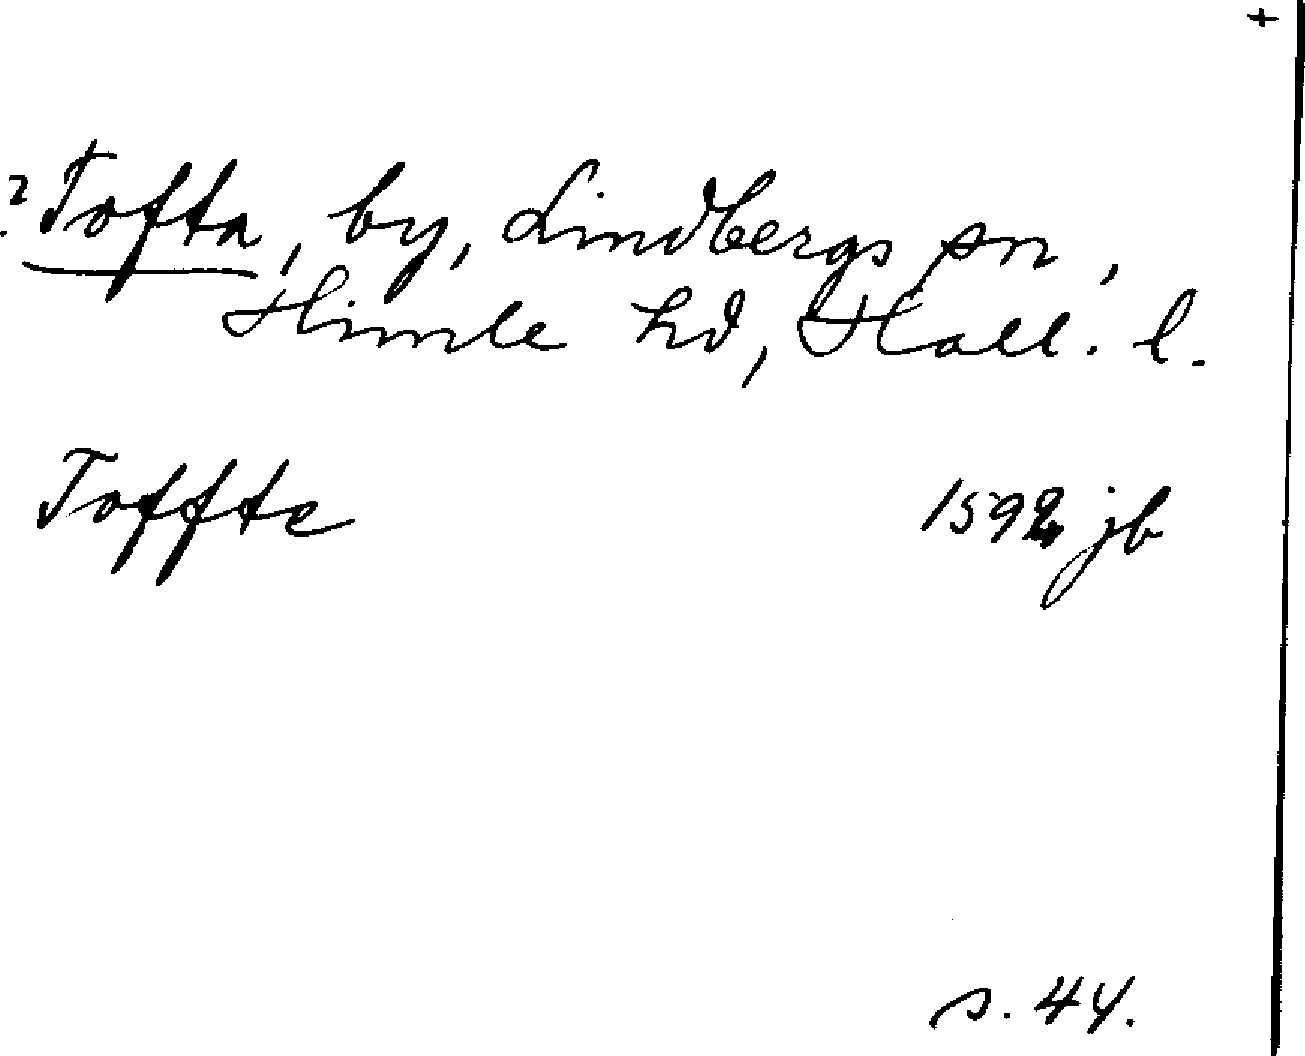 +
? Tofta, by, Lindbergs sn,
Himle hd, Hall. l.
Toffte 1592 jb
s. 44.